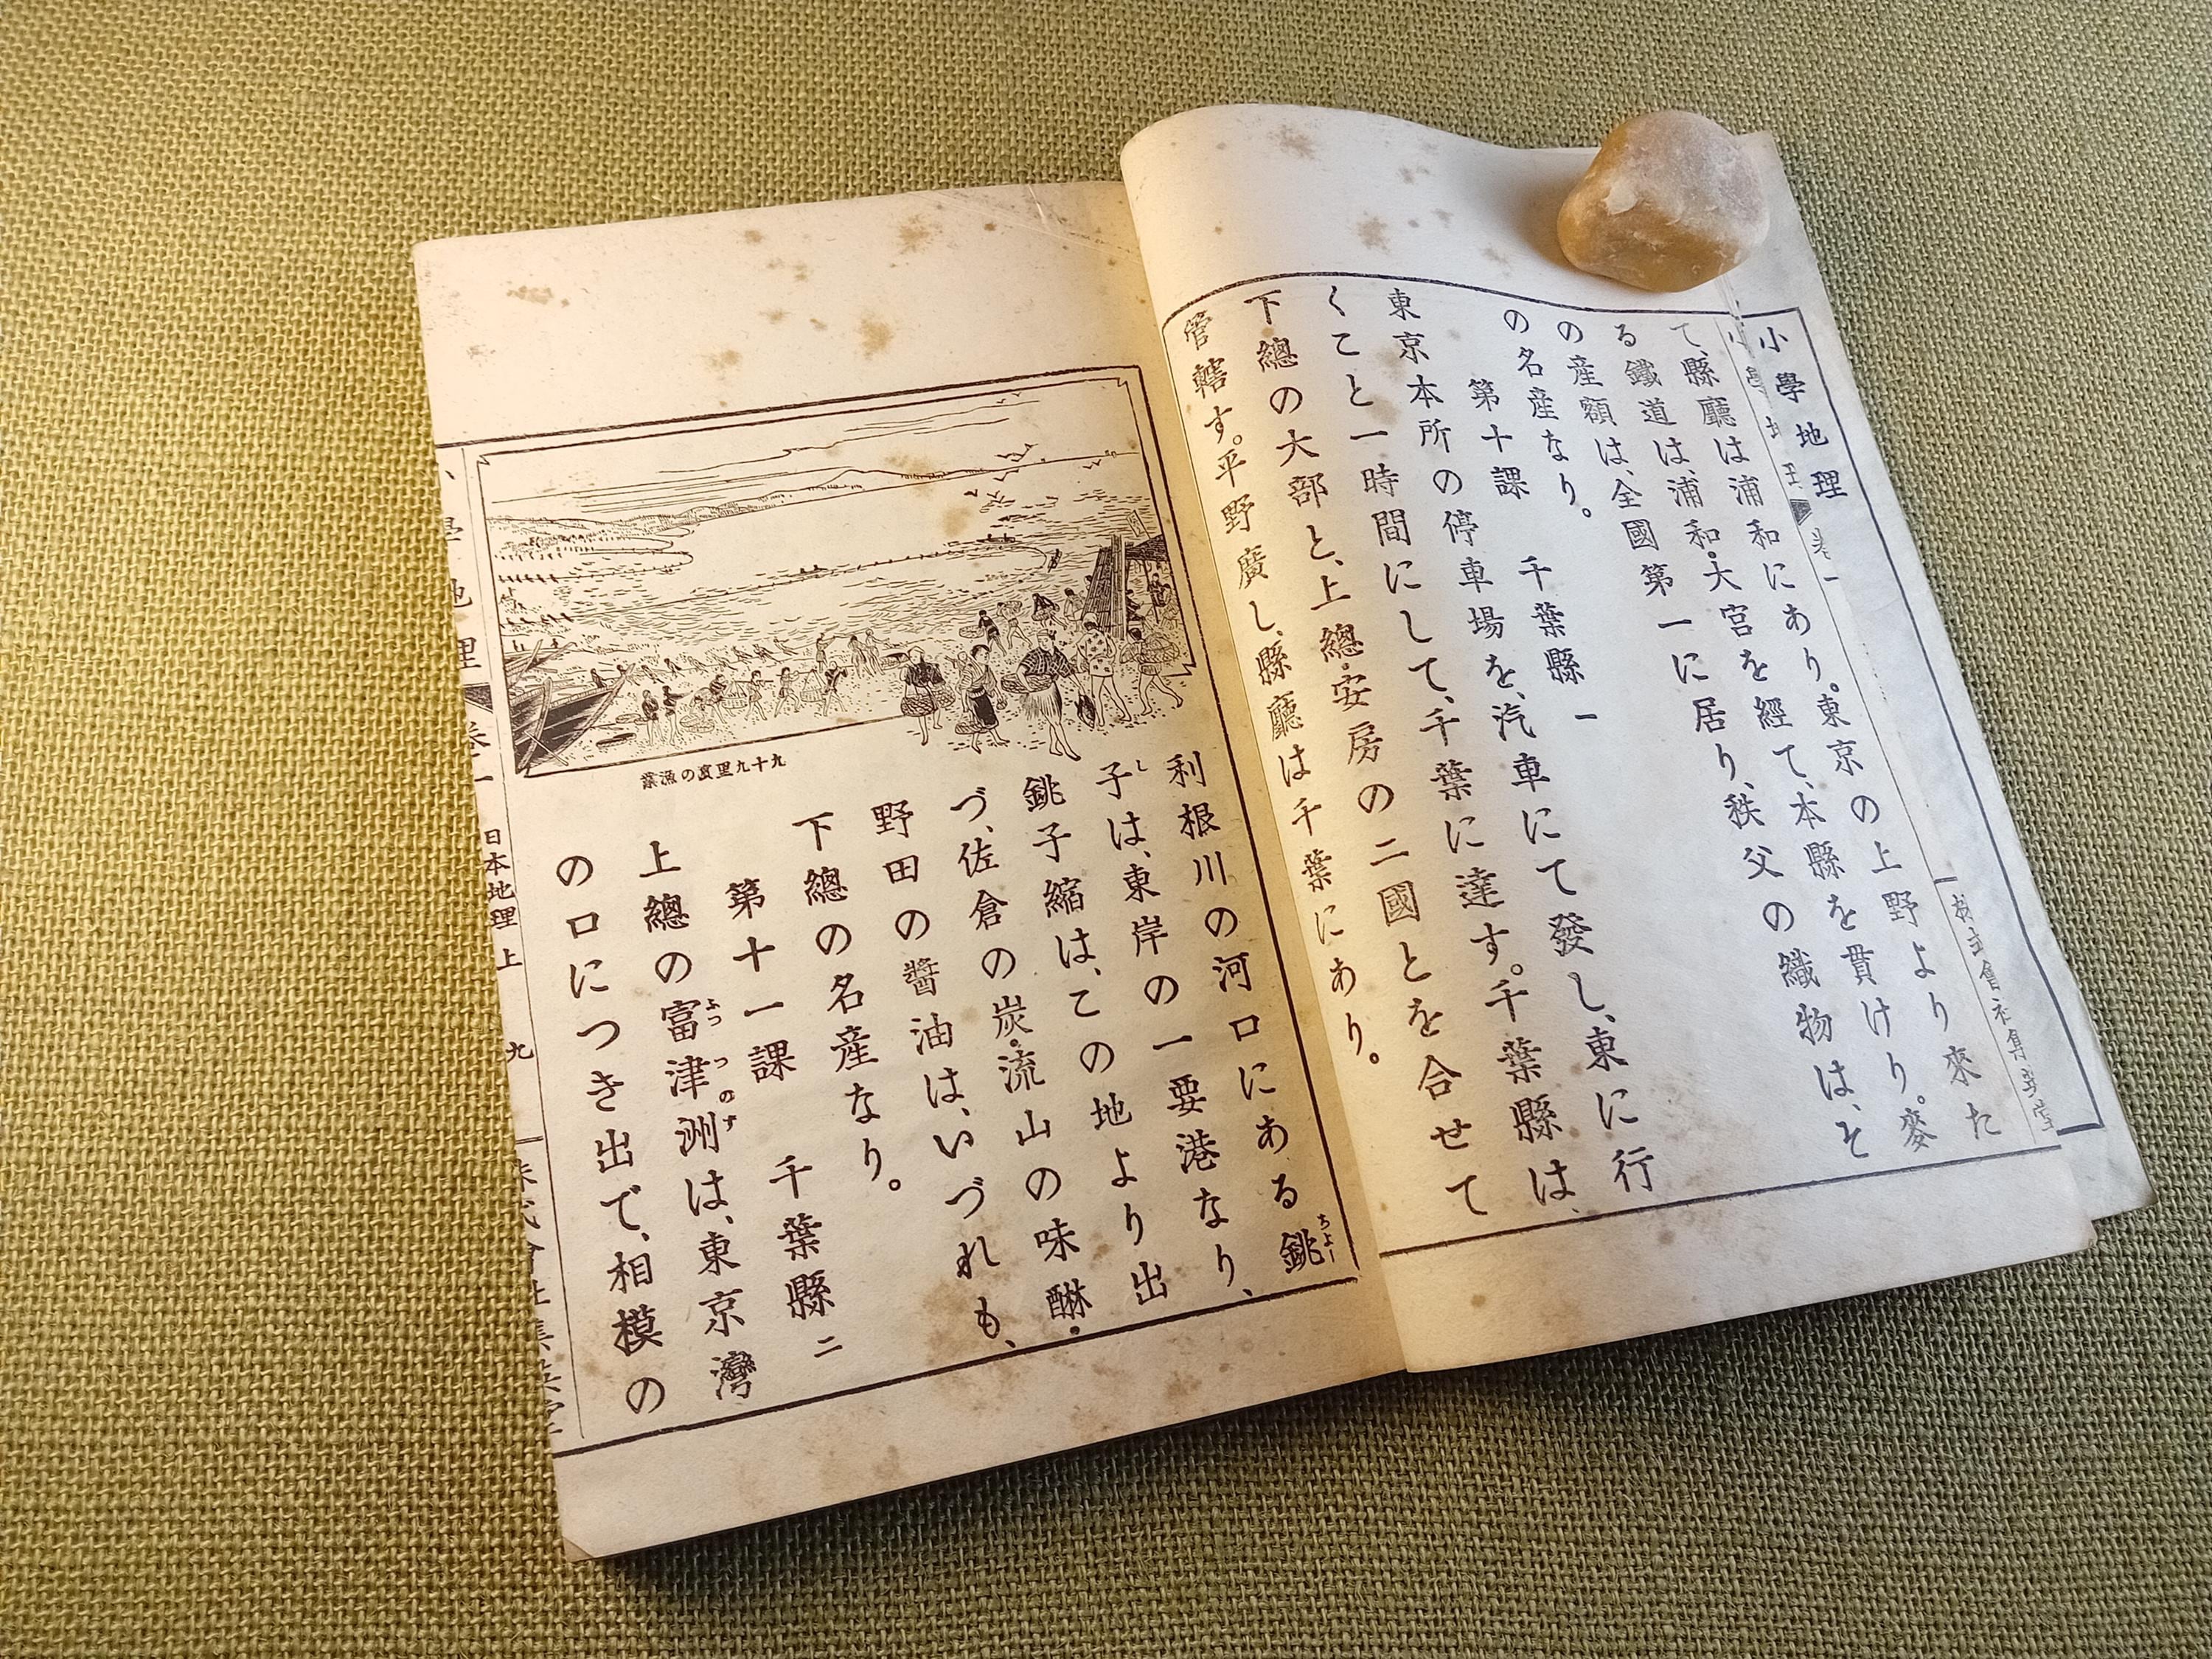 小學地理
て、縣廳は浦和にあり。東京の上野より來た
る鐵道は、浦和・大宮を經て、本縣を貫けり。麥
の産額は、全國第一に居り、秩父の織物は、そ
の名産なり。
第十課 千葉縣 一
東京本所の停車場を、汽車にて發し、東に行
くこと一時間にして、千葉に達す。千葉縣は、
下總の大部と、上總・安房の二國とを合せて
管轄す。平野廣し、縣廳は千葉にあり。
九十九里濱の漁業
利根川の河口にある銚
ちよー
子は、東岸の一要港なり、
し
銚子縮は、この地より出
づ、佐倉の炭・流山の味醂・
野田の醬油は、いづれも、
下總の名産なり。
第十一課 千葉縣 二
上總の富津洲は、東京灣
ふつつのす
の口につき出で、相模の
日本地理 上 九